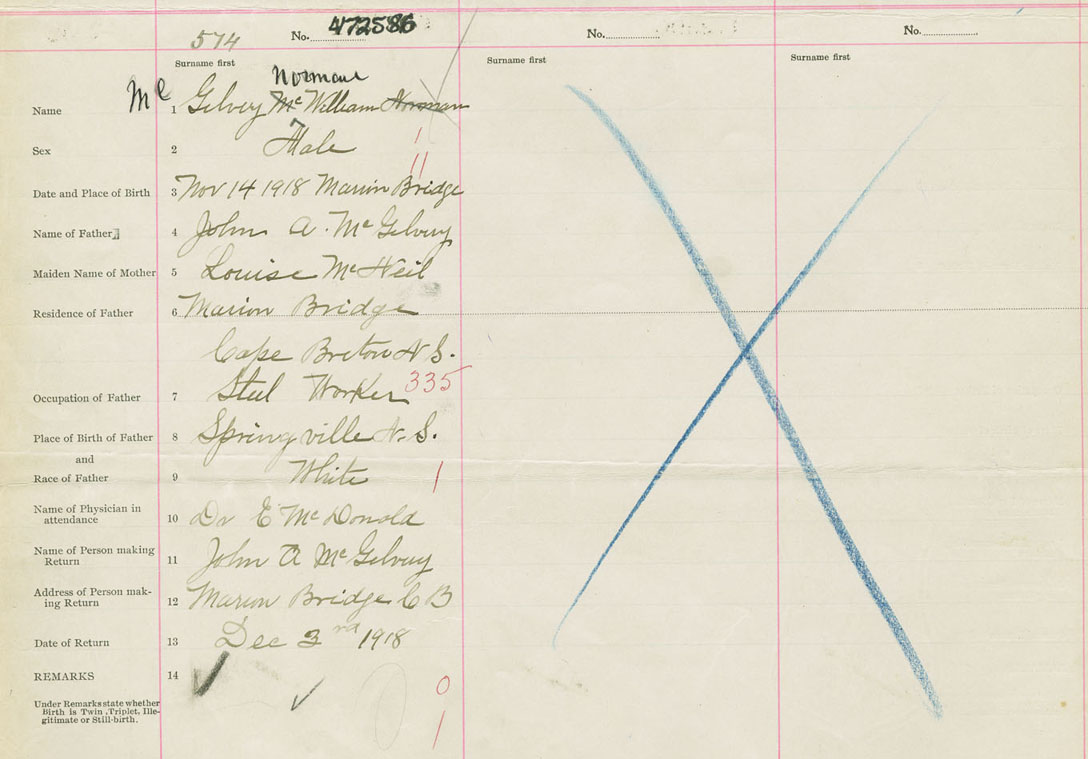 574 No. 472586 No. No.
Surname first Surname first Surname first
Norman
Name Mc 1 Gilvery Mc William Norman
Sex 2 Male 1
11
Date and Place of Birth 3 Nov 14 1918 Marion Bridge
Name of Father 4 John A. Mc Gilvery
Maiden Name of Mother 5 Louise McNeil
Residence of Father 6 Marion Bridge
Cape Breton N S.
Occupation of Father 7 Steel Worker 335
Place of Birth of Father 8 Springville N. S.
and
Race of Father 9 White 1
Name of Physician in
attendance 10 Dr E McDonald
Name of Person making
Return 11 John A McGilvery
Address of Person mak-
ing Return 12 Marion Bridge C B
Date of Return 13 Dec 3rd 1918
REMARKS 14
0
Under Remarks state whether
Birth is Twin, Triplet, Ille-
gitimate or Still-birth. 1